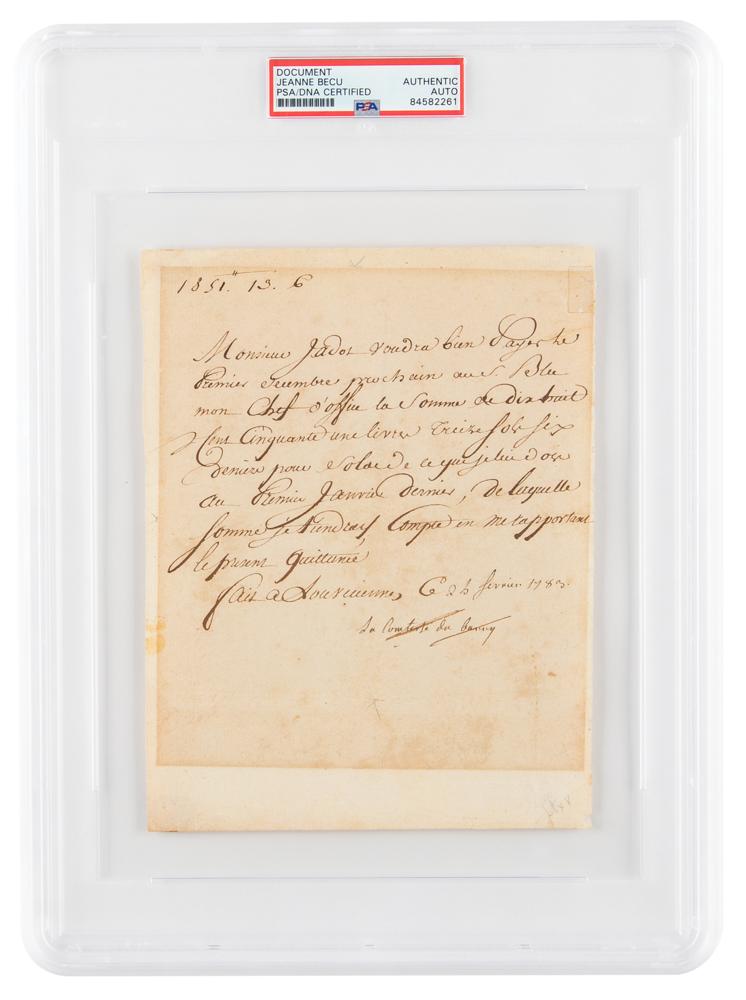 DOCUMENT
JEANNE BECU
PSA/DNA CERTIFIED
AUTHENTIC
AUTO
84582261
PSA
1851.'' 13. 6
Monsieur Jadot voudra bien Payer le
Premier decembre prochain au S. Blu
mon Chef d'office la Somme de dix huit
Cent Cinquante une livres treize sols six
deniers pour Solde de ce que je lui dois
au Premier Janvier dernier, de laquelle
Somme je tiendray Compte en me rapportant
le present quittancé
fait a Louveciennes Ce 24 fevrier 1783.
La Comtesse du Barry